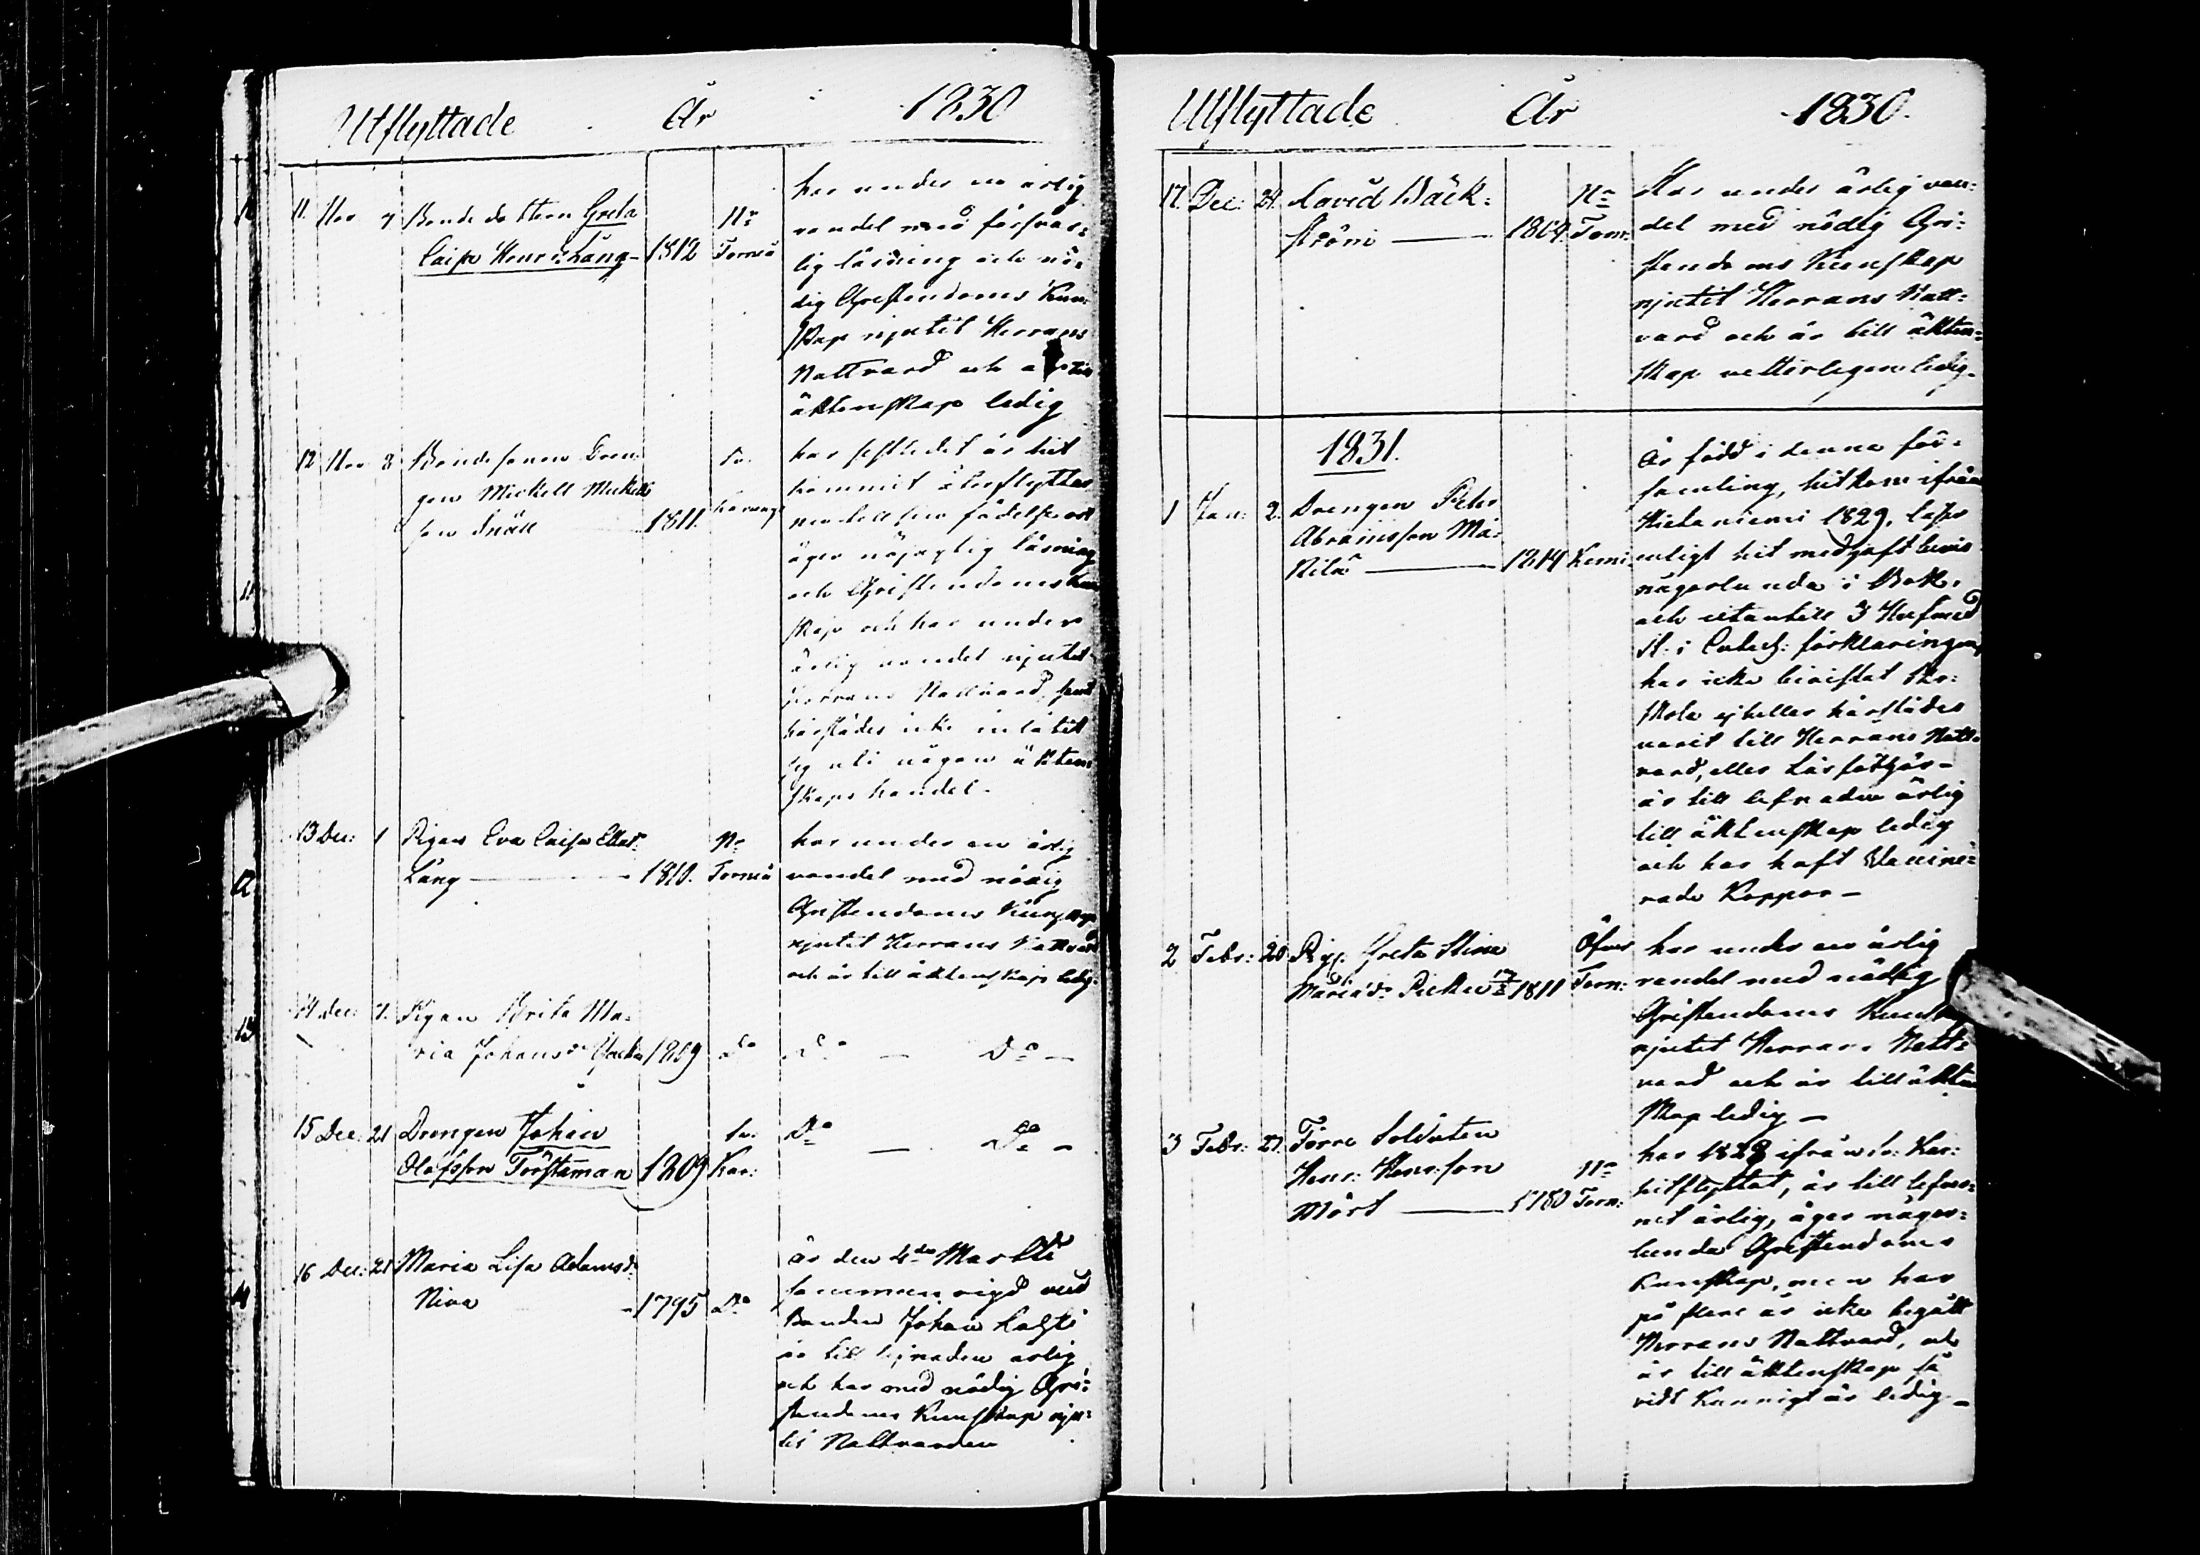 Utflyttade År 1830
11. Nov 7 Bonde dottern Greta
Caisa Henr:dr Lång – 1812 Nr Torneå
har under en ärlig
vandel med försvar-
lig läsning och nö-
dig Christendoms Kun-
skap njutit Herrans
Nattvard och
äktenskap ledig
12 Nov 8 Bonde sonen Dren-
gen Mickell Mickells
son Snäll 1811.
har sistledet år hit
kommit återflyttar
nu till sin födelseort
äger nöjagtig läsning
och Christendoms kun
skap och har under
ärlig vandel njutit
Herrans Nattvard, samt
härstädes icke inlåtit
sig uti någon äkten-
skaps handel.
13 Dec: 1 Pigan Eva Caisa
Lång — 1810. Nr Torneå
har under en ärlig
vandel med nödig
Christendoms Kunskap
njutit Herrans Nattvard
och är till äktenskap ledig.
14 Dec: 7. Pigan Brita Ma-
ria Johansdr 1809 Do Do — Do —
15 Dec: 21 Drengen Johan
Olofsson Törstaman 1809 Kar: Do — Do —
16 Dec: 21 Maria Lisa Adamsdr
Niva – 1795 Do
är den 4de Mar
sammanvigd med
Bonden Johan
är till lefnaden ärlig
och har med nödig Chri-
stendoms Kunskap nju-
tit Nattvarden
Utflyttade År 1830.
17. Dec: 29. David Bäck-
ström — 1809. Nr Torn:
Har under ärlig van-
del med nödig Chri-
stendoms Kunskap
njutit Herrans Natt-
vard och är till äkten-
skap vetterligen ledig.
1831.
1 Jan: 2. Drengen Petter
Abramsson Mä-
kitå — 1814 Kemi
är född i denna för-
samling, hitkom ifrån
Hietaniemi 1829, läser
enligt hit medhaft bevis
någorlunda i Bok,
och utantill 3 Hufvud
st: i Catech: förklaringen,
har icke bevistat Skr:
skola ej heller härstädes
varit till Herrans Natt-
vard, eller Läsförhör –
är till lefnaden ärlig
till äktenskap ledig
och har haft Vaccine-
rade Koppor –
2 Febr: 20 Pig. Greta Stina
1811 Öfver Torn:
har under en ärlig
vandel med nödig
Christendoms Kunskap
njutit Herrans Natt-
vard och är till äkten
skap ledig –
3 Febr: 27. Förre Soldaten
Henr: Henrsson
Mört — 1780 Nr Torn:
har 1828 ifrån Kar:
hitflyttat, är till lefver-
net ärlig, äger någor-
lunda Christendoms
kunskap, men har
på flere år icke begått
Herrans Nattvard, och
är till äktenskap så
vidt kunnigt är ledig –